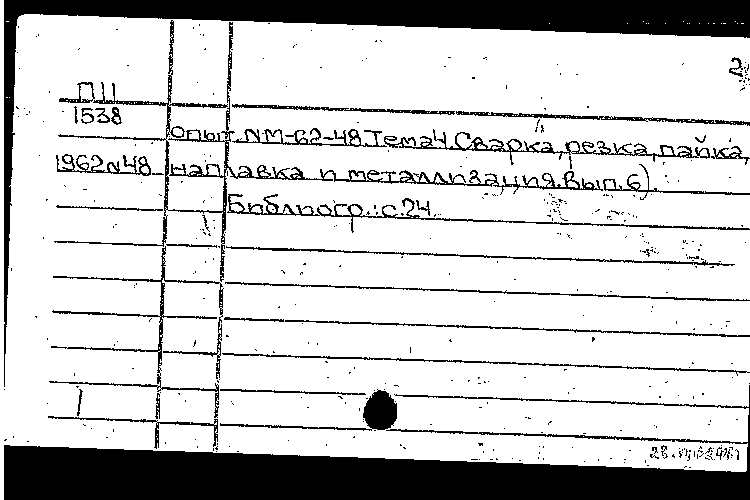 2
П11
1538
опыт. NM-62-48. Тема 4. Сварка, резка, пайка,
1962 N48 наплавка и металлизация. Вып. 6).
Библиогр.: с. 24.